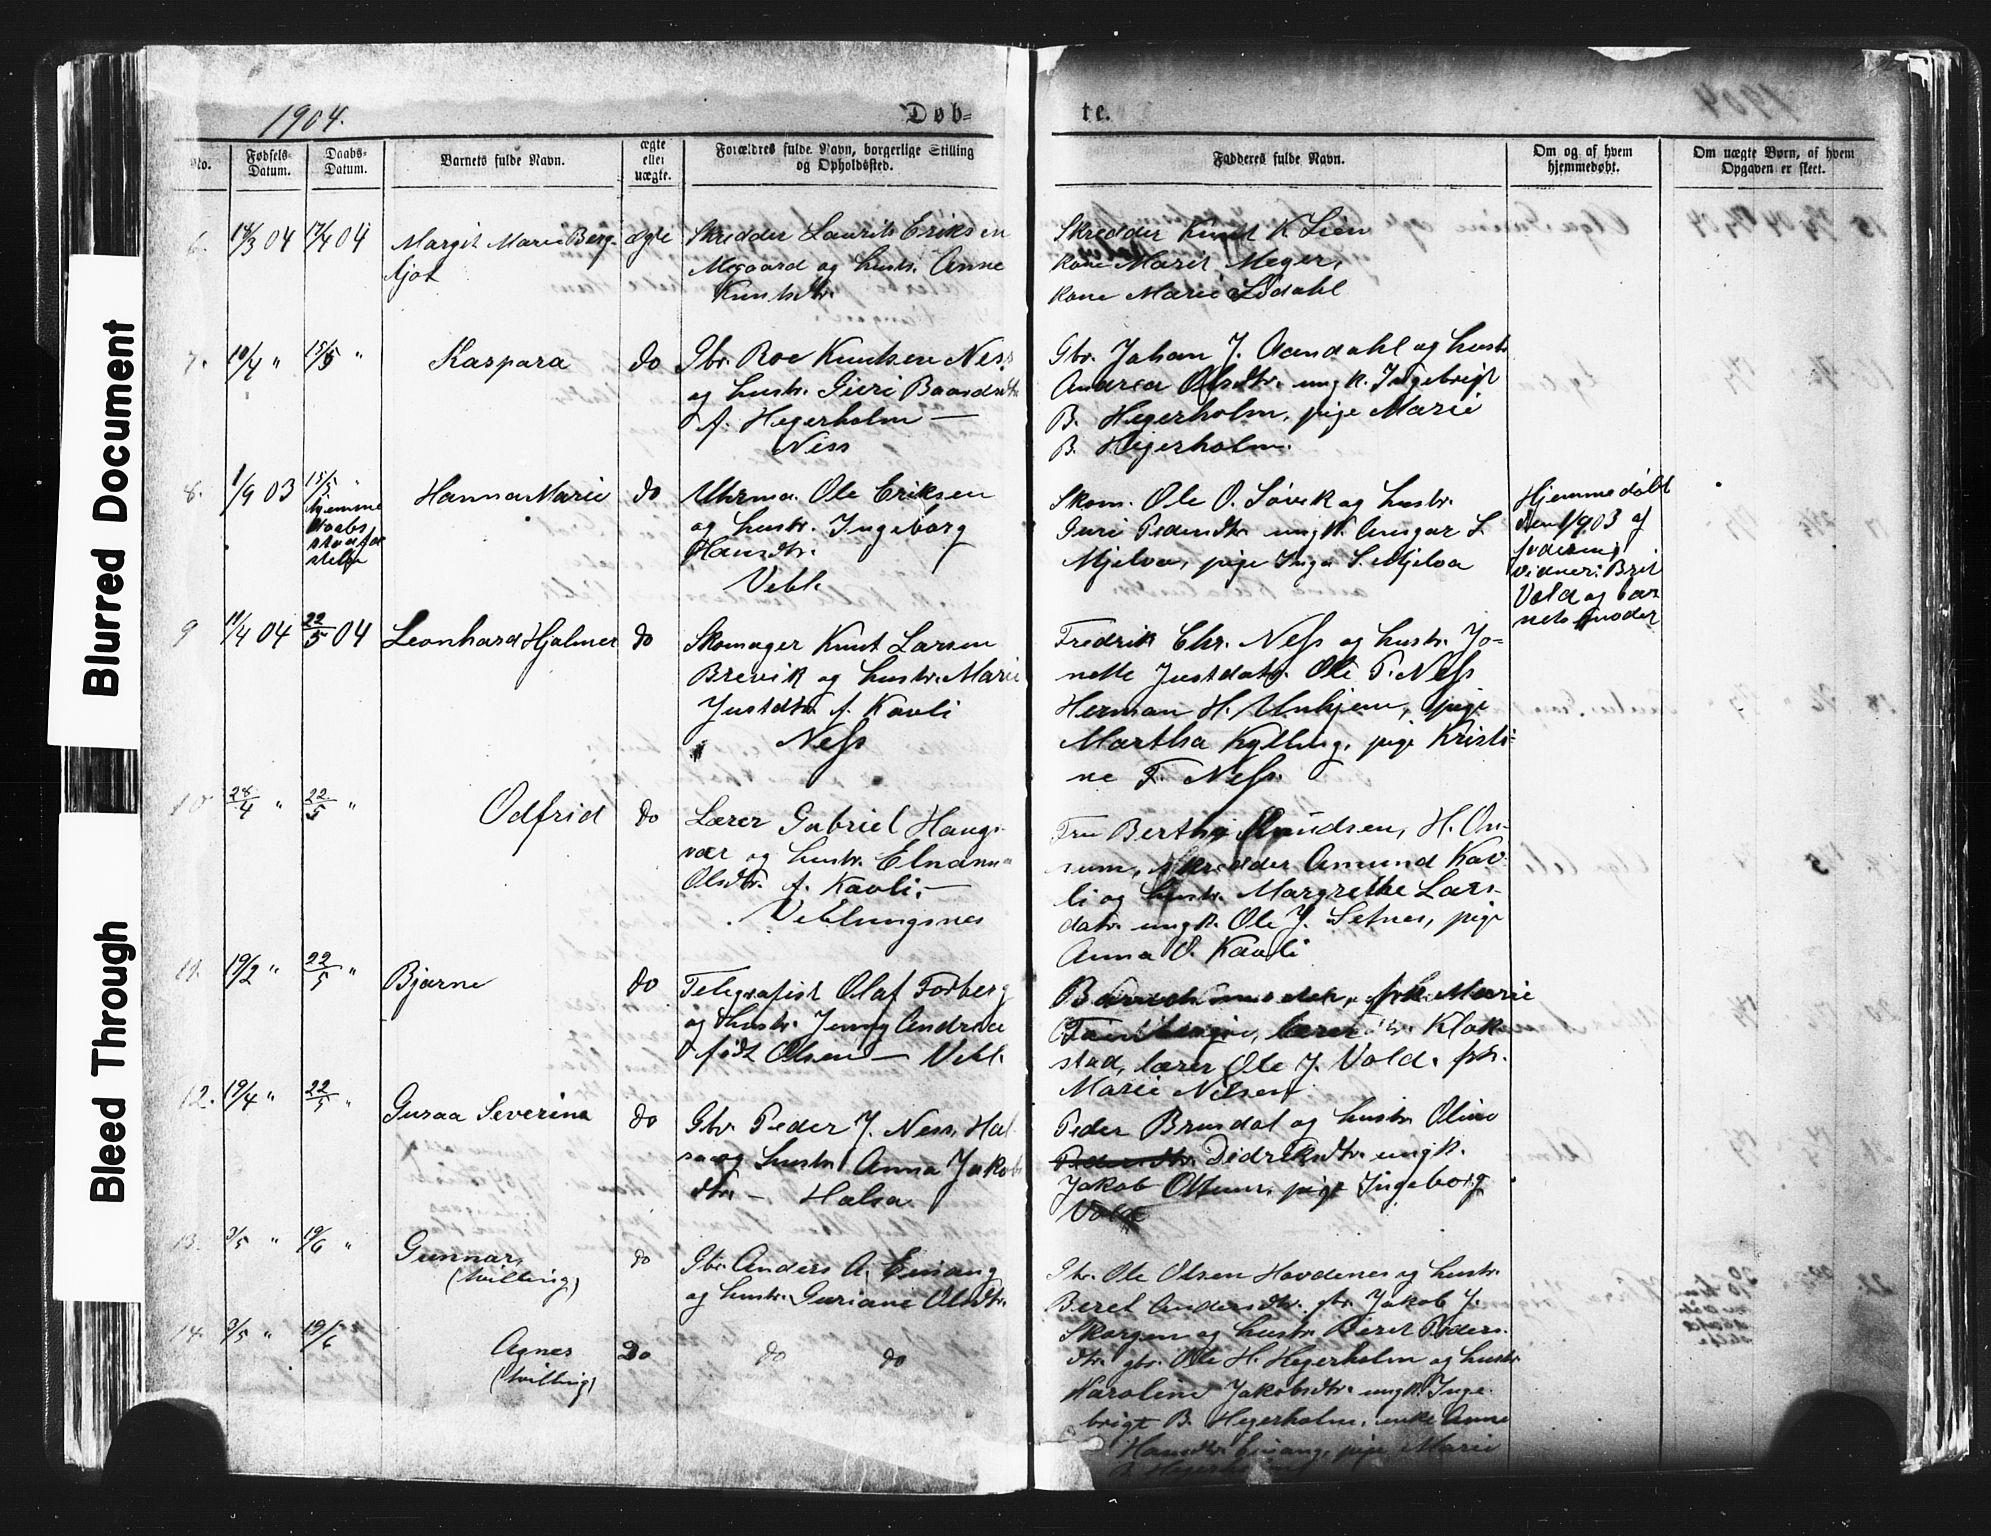 1904.
Døb=
te.
No.
Fødsels-
Datum.
Daabs-
Datum.
Barnets fulde Navn.
ægte
eller
uægte.
Forældres fulde Navn, borgerlige Stilling
og Opholdssted.
Fadderes fulde Navn.
Om og af hvem
hjemmedøbt.
Om uægte Børn, af hvem
Opgaven er skeet.
6. 18/3 04 17/4 04 Margit Marie Berg-
ljot
ægte
Skredder Laurits Eriksen
Megaard og hustr. Anne
Knutsdtr.
Skredder Knut K Lien
kone Marit Meyer,
kone Marie Lødahl
7. 10/4 " 15/5 " Kaspara do
Gbr. Roe Knutsen Ness
og hustr. Guri Baardsdtr
f. Hegerholm —
Ness
Gbr. Johan J. Aandahl og hustr
Andrea Olsdtr. ungk. Ingebrigt
B. Hegerholm, pige Marie
B. Hegerholm.
8. 1/9 03 15/5 "
hjemme
daabs
stadfæ
stelse
Hanna Marie do
Uhrma. Ole Eriksen
og hustr. Ingeborg
Hansdtr.
Vebl.
Skom. Ole O. Søvik og hustr.
Guri Pedersdtr. ungk. Ansgar S
Mjelva, pige Inga S. Mjelva
Hjemmedøbt
den 1/9 03 af
vidner: Brit
Vold og bar
nets moder
9 11/4 04 22/5 04 Leonhard Hjalmer do
Skomager Knut Larsen
Brevik og hustr. Marie
Justdtr. f. Kavli
Ness
Fredrik Chr. Ness og hustr. Jo-
nette Justdatr. Ole T. Ness
Herman H. Unhjem, pige
Martha Kylling, pige Kristi-
ne F. Ness.
10 28/4 " 22/5 " Odfrid do
Lærer Gabriel Haugs-
vær og hustr. Elnanna
Olsdtr. f. Kavli. —
Veblungsnes
Fru Berthe Knudsen, H. On-
sum, skredder Amund Kav-
li og hustr. Margrethe Lars-
datr. ungk. Ole J. Setnes, pige
Anna O. Kavli
11. 19/2 " 22/5 " Bjarne do
Telegrafist Olaf Forberg
og hustr. Jenny Andrea
født Olsen — Vebl.
Barnets moder, frk. Marie
lærer Kløk-
stad, lærer Ole J. Vold. frk.
Marie Nilsen
12. 19/4 " 22/5 " Guraa Severine do
Gbr. Peder J. Ness, Hal-
sa og hustr. Anna Jakobs
dtr. — Halsa
Peder Brudal og hustr. Oline
Pedersdtr. Didriksdtr. ungk.
Jakob pige Ingeborg
Vold
13. 3/5 " 19/6 " Gunnar
(tvilling) do
Gbr. Anders A. Einang
og hustr. Guriane Olsdtr.
14. 3/5 " 19/6 Agnes
(tvilling) Do
do do
Gbr. Ole Olsen Hovdenes og hustr.
Beret Andersdtr. gbr. Jakob J.
Skorgen og hustr. Beret Peders-
dtr. gbr. Ole H. Hegerholm og hustr
Karoline Jakobsdtr. ungk. Inge-
brigt B. Hegerholm, enke Anne
Hansdtr. Einang, pige Marie
B. Hegerholm
Blurred Document
Bleed Through